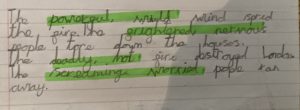 The powerful, swift wind spred
the fire. the frightened nervous
people tore down the houses.
The deadly, hot fire destroyed London.
The screaming, worried people ran
away.